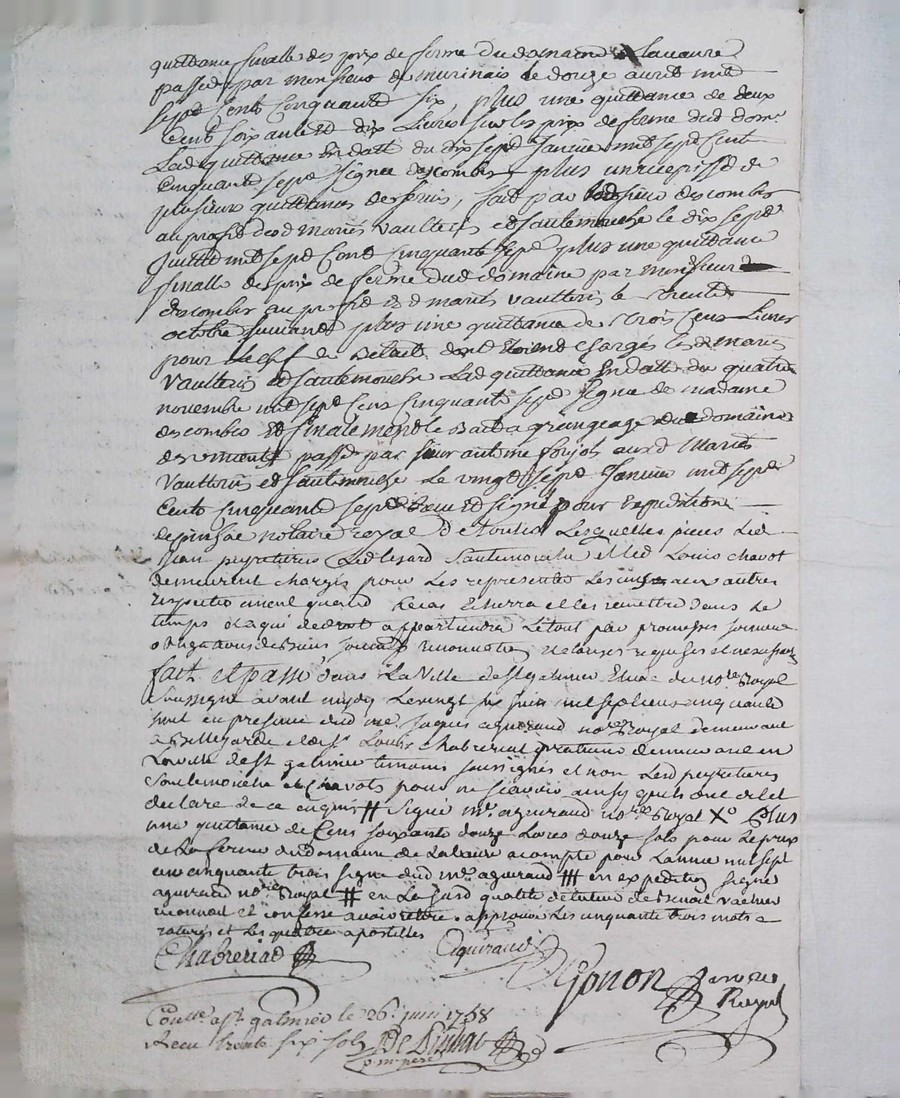 quittance finalle des prix de ferme du domaine de Lavaure
passée par monsieur de murinais le douze avril mil
sept cents cinquante six, plus une quittance de deux
Cent soixante et dix Livres sur les prix de ferme dud dome
Lad quittance en datte du dix sept Janvier mil sept cent
cinquante sept signée descombes plus un recepissé de
plusieurs quittances de servis, fait par led sieur descombes
au profit desd mariés vaulteris et sautemouche le dix sept
Juillet mil sept cent cinquante sept plus une quittance
finalle des prix de ferme dud domaine par monsieur
descombes au profit desd mariés vaulteris le trente
octobre suivant plus une quittance de trois cens Livres
pour le chef de betail dont etoient chargés lesd mariés
vaulteris et sautemouche Lad quittance en datte du quatre
novembre mil sept cens cinquante sept signé de madame
descombes et finalement le bail a grangeage dud domaine
passé par sieur antoine aux d Mariés
vaulteris et sautemouche Le vingt sept Janvier mil sept
cents cinquante sept Reçu et signé pour expedition
notaire royal Lesquelles pieces led
Jean peyratieres Led Sautemouche et led Louis chavot
demeurent chargés pour les representer les uns aux autres
respectivement quand le cas echerra et les remettre dans le
temps et a qui de droit appartiendra Le tout par promesses
obligations de biens renonciations et clauses requises
fait et passé dans La Ville de St galmier Etude du nore Royal
soussigné avant midy Le vingt six Juin mil sept cens cinquante
huit en presence dud me Jaques aguiraud nore Royal demeurant
a Bellegarde et de sr Louis chabreriat praticien demeurant en
La ville de St galmier temoins soussignés et non Lesd peyratieres
Sautemouche et Chavot pour ne sçavoir ainsy quils ont dit et
declaré de ce enquis # Signé me aguiraud nore Royal Xo Plus
une quittance de Cens soixante douze Livres douze sols pour Le prix
de La ferme du domaine de Lavaure acompte pour Lannée mil sept
cens cinquante trois signé dud me aguiraud # en expedition signé
aguiraud nore Royal # en Le qualité de tuteur de Vacher
reconnoit et confesse avoir retiré. approuvé Les cinquante trois mots
raturés et Les quatre apostilles
Chabreriat
Aguiraud
Gonon notaire
Royal
Conllé a St galmier le 26e juin 1758
Recu trente six sols